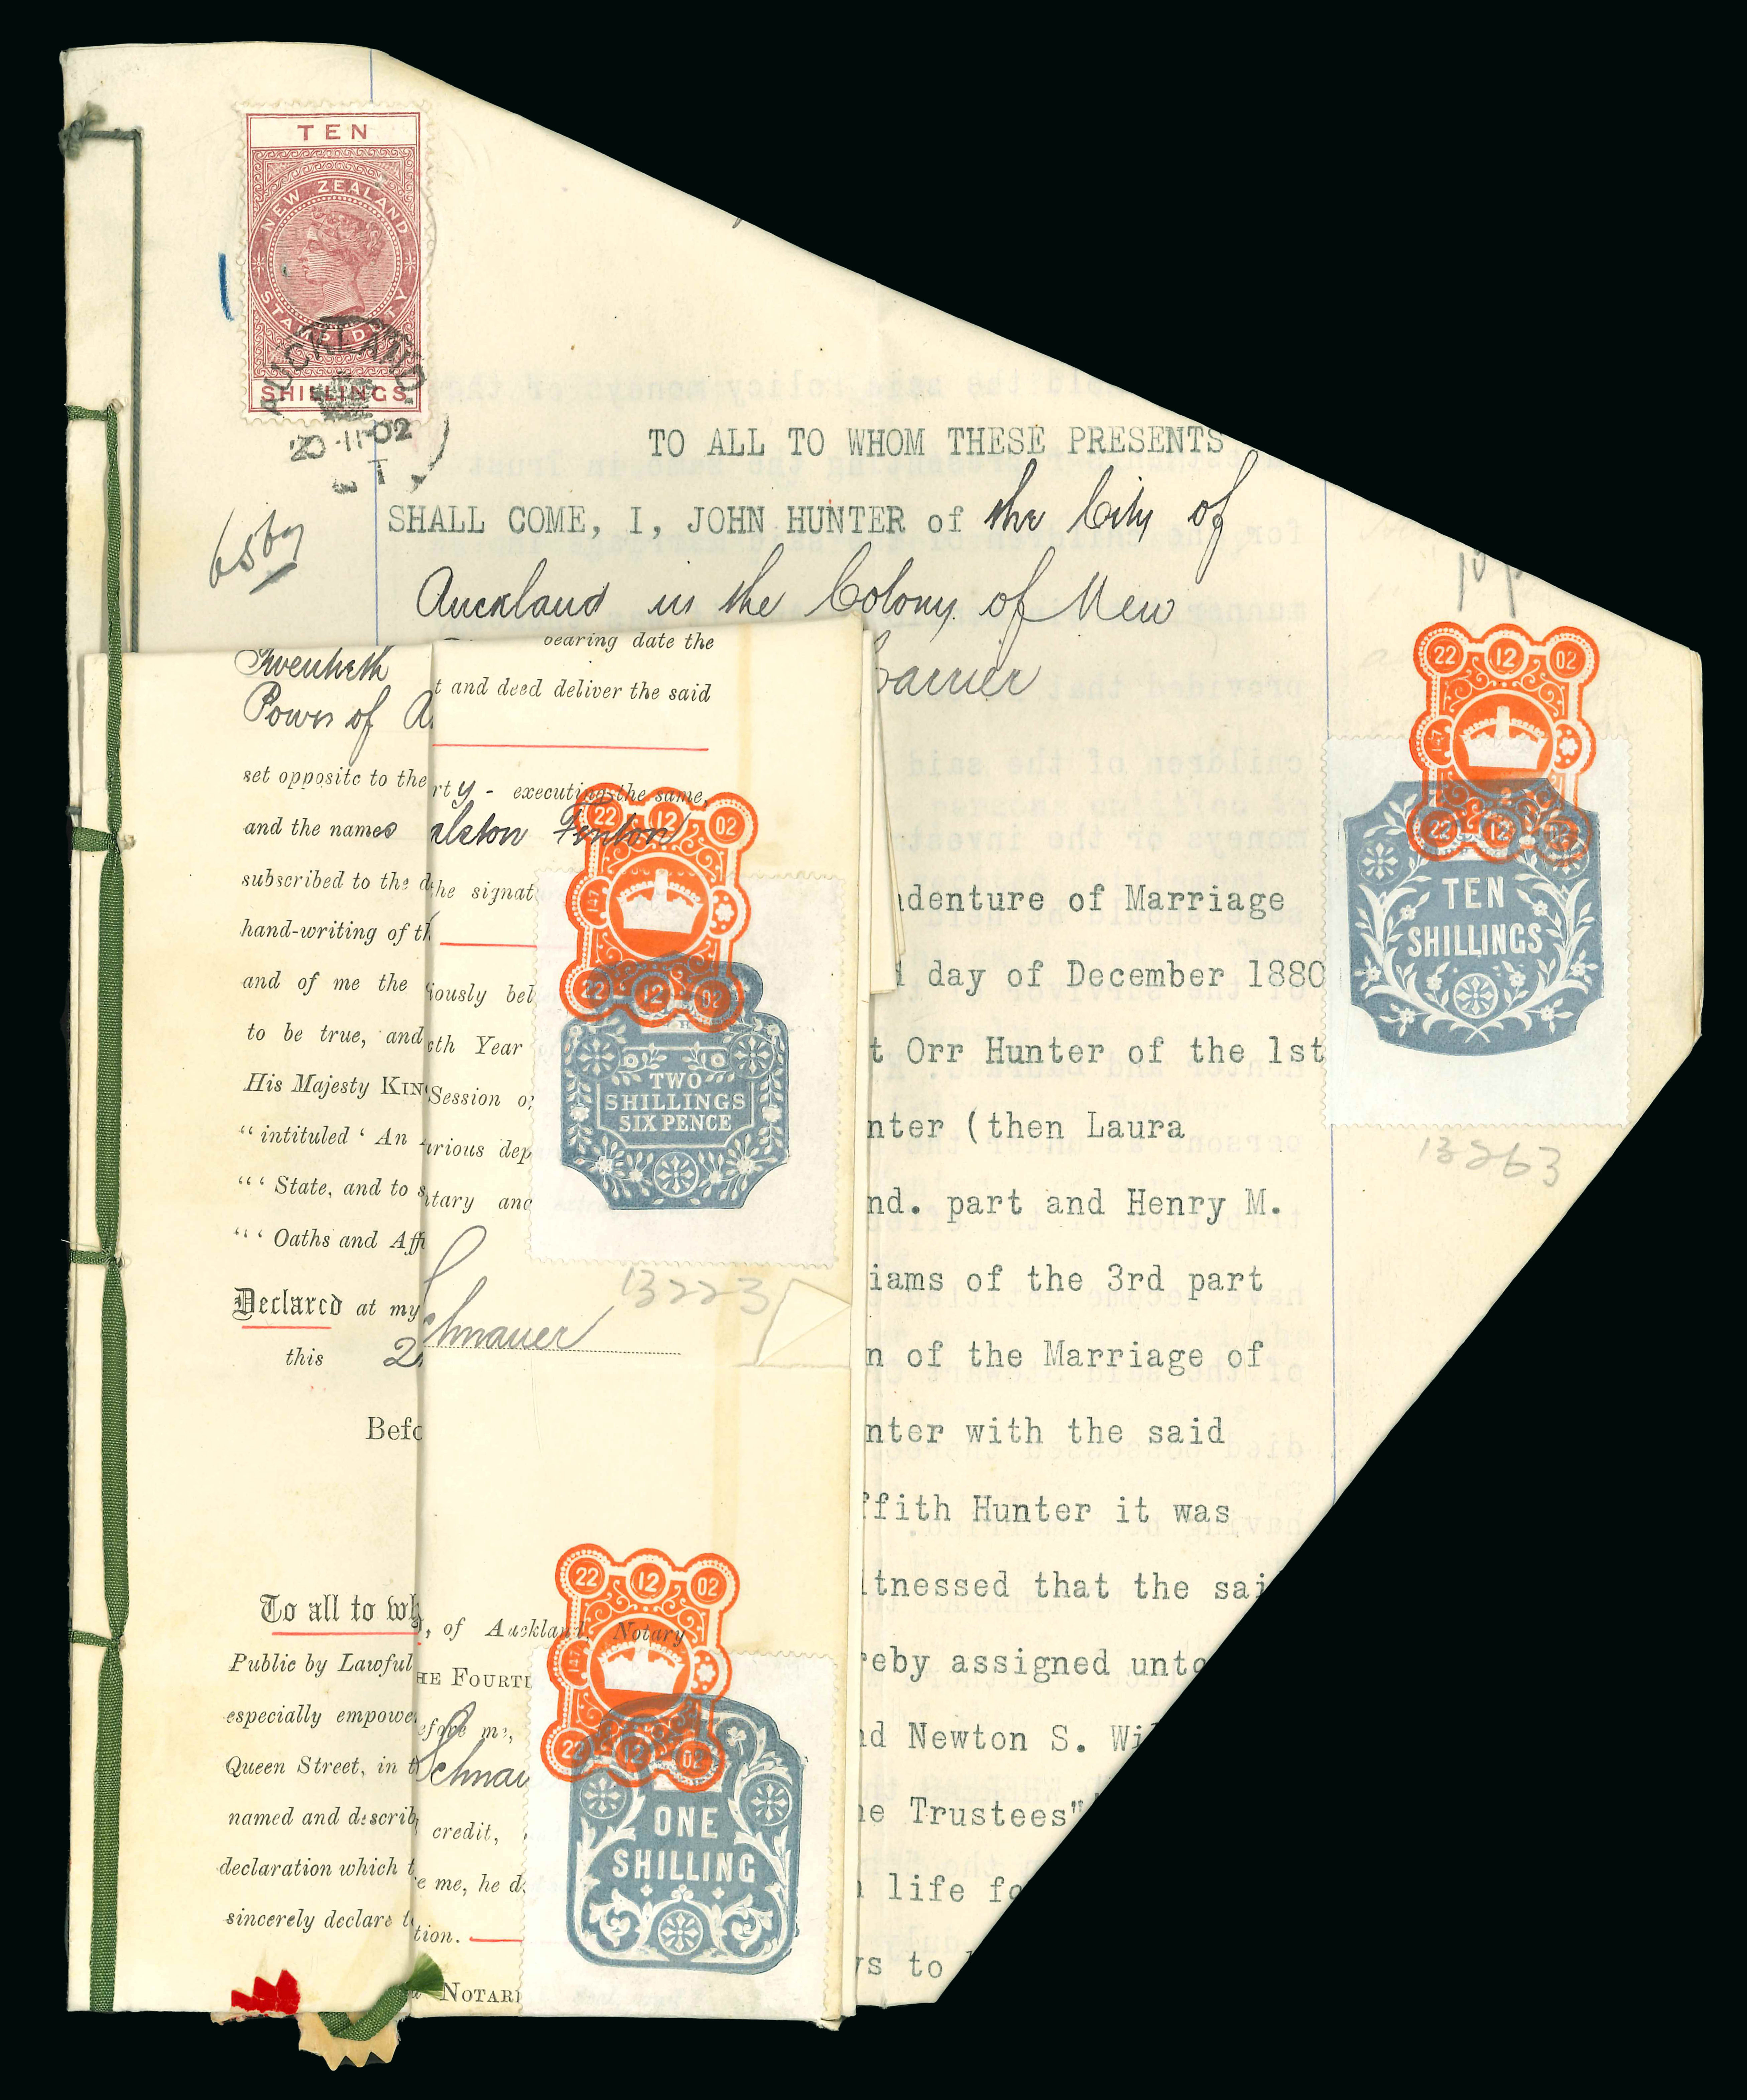 TEN
NEW ZEALAND
STAMP DUTY
SHILLINGS
AUCKLAND
20-11-02
TO ALL TO WHOM THESE PRESENTS
SHALL COME, I, JOHN HUNTER of the City of
Auckland in the Colony of New
Twentieth
Power of A
set opposite to the
and the names
subscribed to the d
hand-writing of th
and of me the
to be true, and
His Majesty KIN
“ intituled ‘ An
“‘ State, and to s
“‘ Oaths and Aff
Declared at my
this 2
Befo
To all to wh
Public by Lawful
especially empowe
Queen Street, in t
named and describ
declaration which t
sincerely declare t
bearing date the
t and deed deliver the said
rty - executing the same,
alston Fenton
he signat
iously bel
th Year
Session o
rious dep
tary and
chnauer
13223
, of Auckland, Notary
HE FOURTH
efore me,
Schnau
credit,
e me, he d
tion.
NOTARI
22 12 02
147
22 12 02
TWO
SHILLINGS
SIXPENCE
22 12 02
147
22 12 02
ONE
SHILLING
arrier
ndenture of Marriage
d day of December 1880
t Orr Hunter of the 1st
nter (then Laura
nd. part and Henry M.
iams of the 3rd part
n of the Marriage of
nter with the said
ffith Hunter it was
itnessed that the sai
reby assigned unto
nd Newton S. Wil
he Trustees"
n life fo
ys to
22 12 02
147
22 12 02
TEN
SHILLINGS
13263